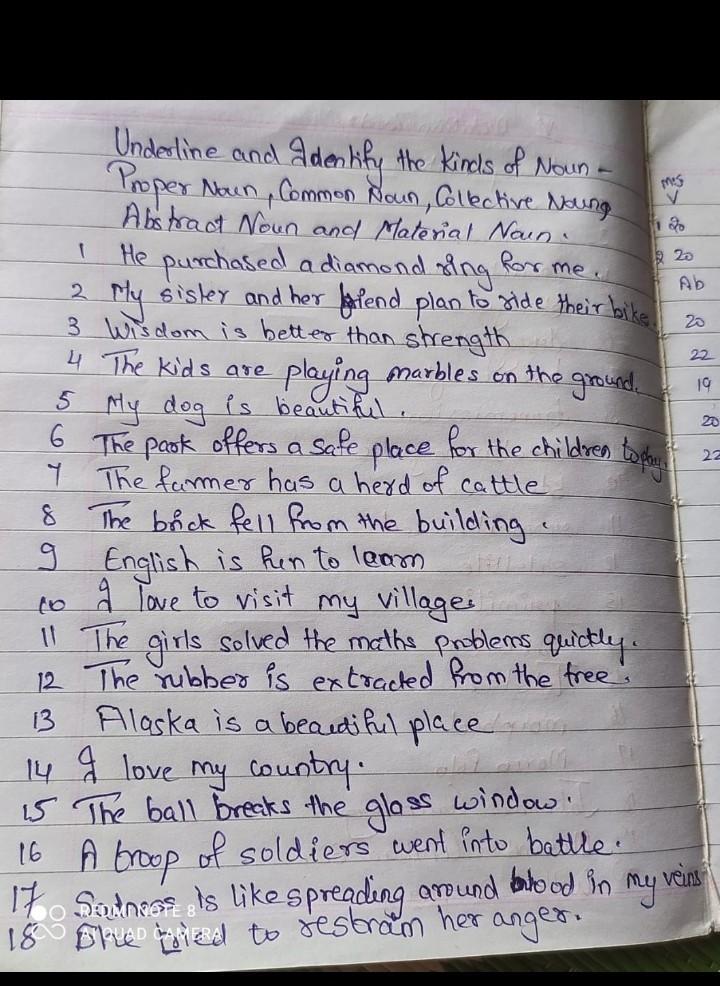 Underline and Identify the kinds of Noun -
Proper Noun, Common Noun, Collective Noung
Abstract Noun and Material Noun.
1 He purchased a diamond ring for me.
2 My sister and her friend plan to ride their bike.
3 Wisdom is better than strength
4 The kids are playing marbles on the ground.
5 My dog is beautiful.
6 The park offers a safe place for the children to play
7 The farmer has a herd of cattle
8 The brick fell from the building.
9 English is fun to learn
10 I love to visit my villages
11 The girls solved the maths problems quickly.
12 The rubber is extracted from the tree.
13 Alaska is a beautiful place
14 I love my country.
15 The ball breaks the glass window.
16 A troop of soldiers went into battle.
17 is like spreading around blood in my veins
18 She tried to restrain her anger.
REDMI NOTE 8
AI QUAD CAMERA
20
20
Ab
20
22
19
20
22